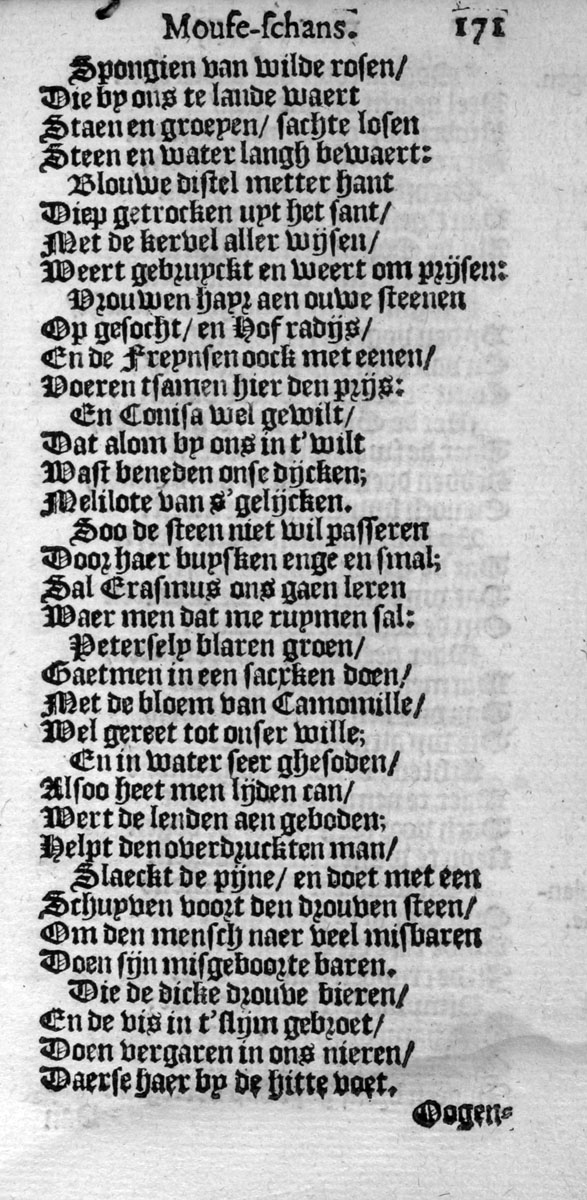 Mouse-schans. 171
Spongien van wilde rosen/
Die by ons te lande waert
Staen en groeyen/ sachte losen
Steen en water langh bewaert:
Blouwe distel metter hant
Diep getrocken uyt het sant/
Met de kervel aller wijsen/
Weert gebruyckt en weert om prijsen:
Vrouwen hayr aen ouwe steenen
Op gesocht/ en Hof radijs/
En de Freynsen oock met eenen/
Voeren tsamen hier den prijs:
En Conisa wel gewilt/
Dat alom by ons in t'wilt
Wast beneden onse dijcken;
Melilote van s'gelijcken.
Soo de steen niet wil passeren
Door haer buysken enge en smal;
Sal Erasmus ons gaen leren
Waer men dat me ruymen sal:
Petersely blaren groen/
Gaetmen in een sacxken doen/
Met de bloem van Camomille/
Wel gereet tot onser wille;
En in water seer ghesoden/
Alsoo heet men lijden can/
Wert de lenden aen geboden;
Helpt den overdruckten man/
Slaeckt de pijne/ en doet met een
Schuyven voort den drouven steen/
Om den mensch naer veel misbaren
Doen sijn misgeboorte baren.
Die de dicke drouve bieren/
En de vis in t'slijm gebroet/
Doen vergaren in ons nieren/
Daerse haer by de hitte voet.
Oogen-